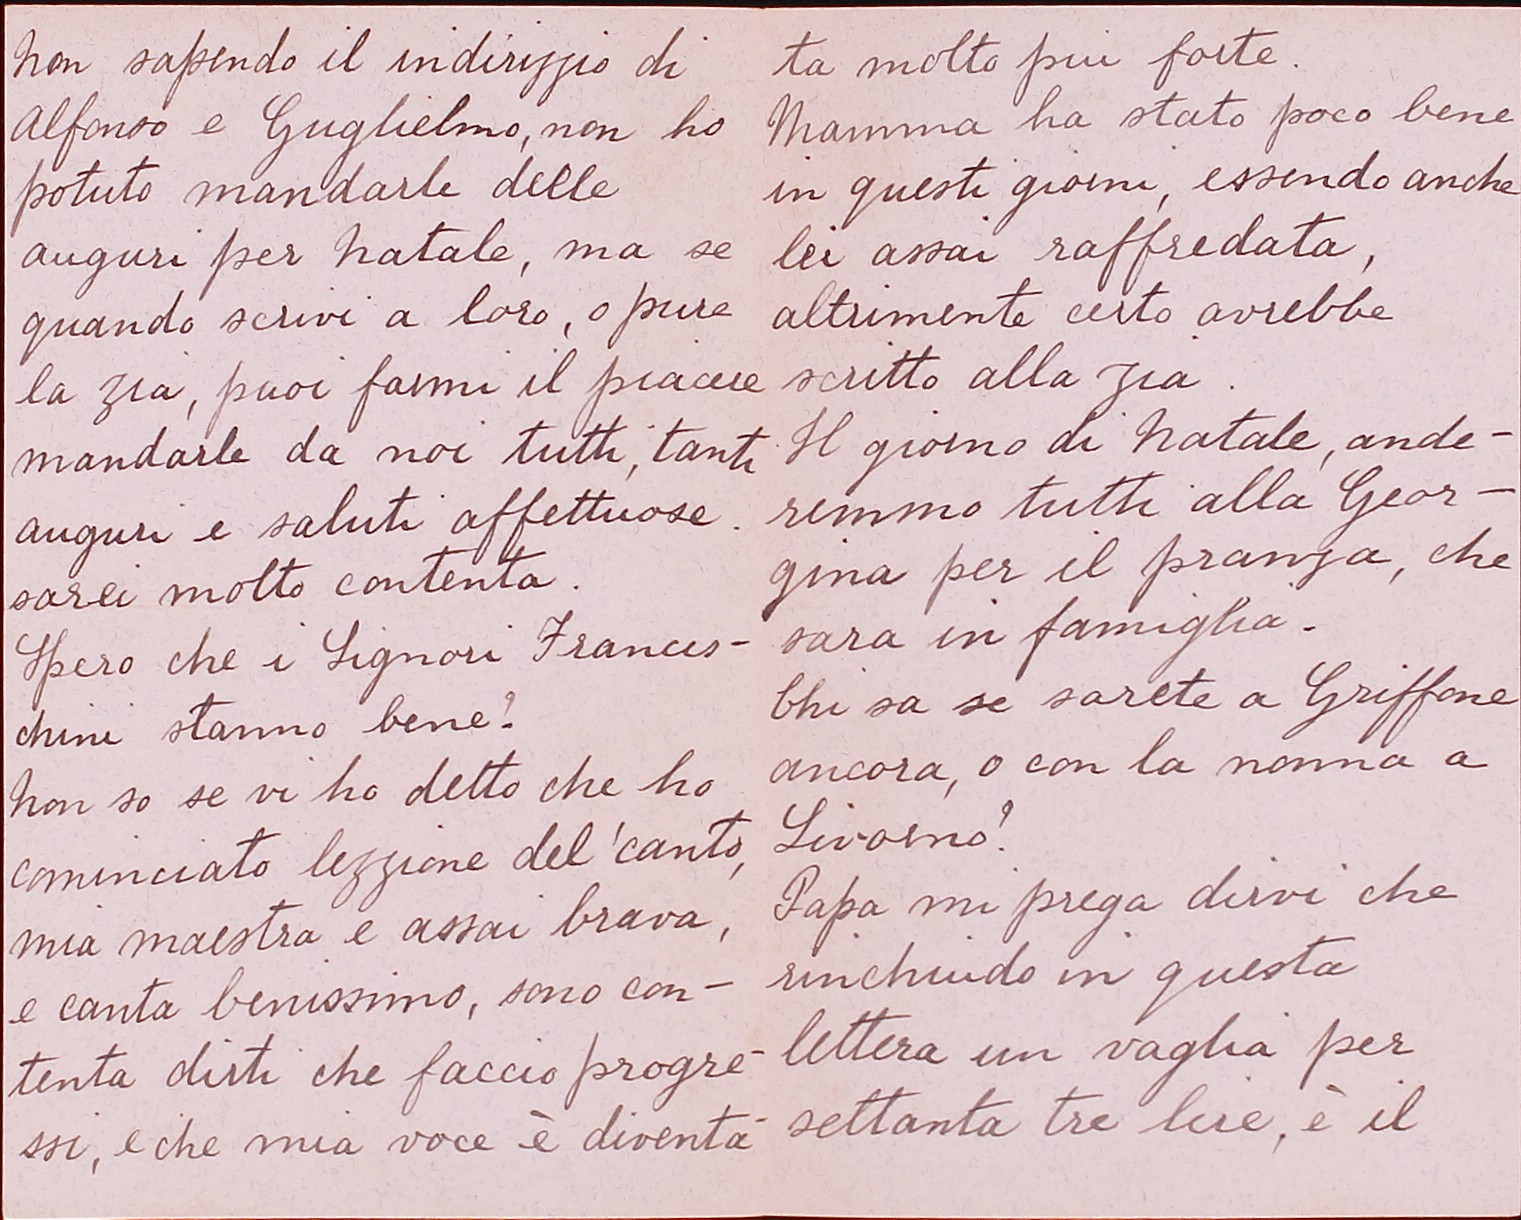 Non sapendo il indirizzio di
Alfonso e Guglielmo, non ho
potuto mandarle delle
auguri per Natale, ma se
quando scrivi a loro, o pure
la zia, puoi farmi il piacere
mandarle da noi tutti, tanti
auguri e saluti affettuose.
sarei molto contenta.
Spero che i Signori Frances-
chini stanno bene?
Non so se vi ho detto che ho
cominciato lezzione del 'canto,
mia maestra e assai brava,
e canta benissimo, sono con-
tenta dirti che faccio progre-
ssi, e che mia voce è diventa-
ta molto piu forte.
Mamma ha stato poco bene
in questi giorni, essendo anche
lei assai raffredata,
altrimente certo avrebbe
scritto alla zia.
Il giorno di Natale, ande-
remmo tutti alla Geor-
gina per il pranza, che
sara in famiglia.
Chi sa se sarete a Griffone
ancora, o con la nonna a
Livorno?
Papa mi prega dirvi che
rinchiudo in questa
lettera un vaglia per
settanta tre lire, è il